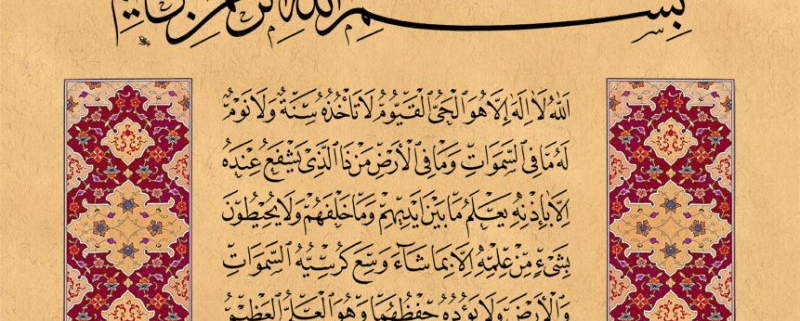 بِسْمِ اللهِ الرَّحْمٰنِ الرَّحِيْمِ
اَللهُ لَا اِلٰهَ اِلَّا هُوَ الْحَىُّ الْقَيُّوْمُ لَا تَأْخُذُهُ سِنَةٌ وَلَا نَوْمٌ
لَهُ مَا فِى السَّمٰوَاتِ وَمَا فِى الْاَرْضِ مَنْ ذَا الَّذِىْ يَشْفَعُ عِنْدَهُ
اِلَّا بِاِذْنِهِ يَعْلَمُ مَا بَيْنَ اَيْدِيْهِمْ وَمَا خَلْفَهُمْ وَلَا يُحِيْطُوْنَ
بِشَىْءٍ مِنْ عِلْمِهِ اِلَّا بِمَا شَاءَ وَسِعَ كُرْسِيُّهُ السَّمٰوَاتِ
وَالْاَرْضَ وَلَا يَؤُدُهُ حِفْظُهُمَا وَهُوَ الْعَلِىُّ الْعَظِيْمُ